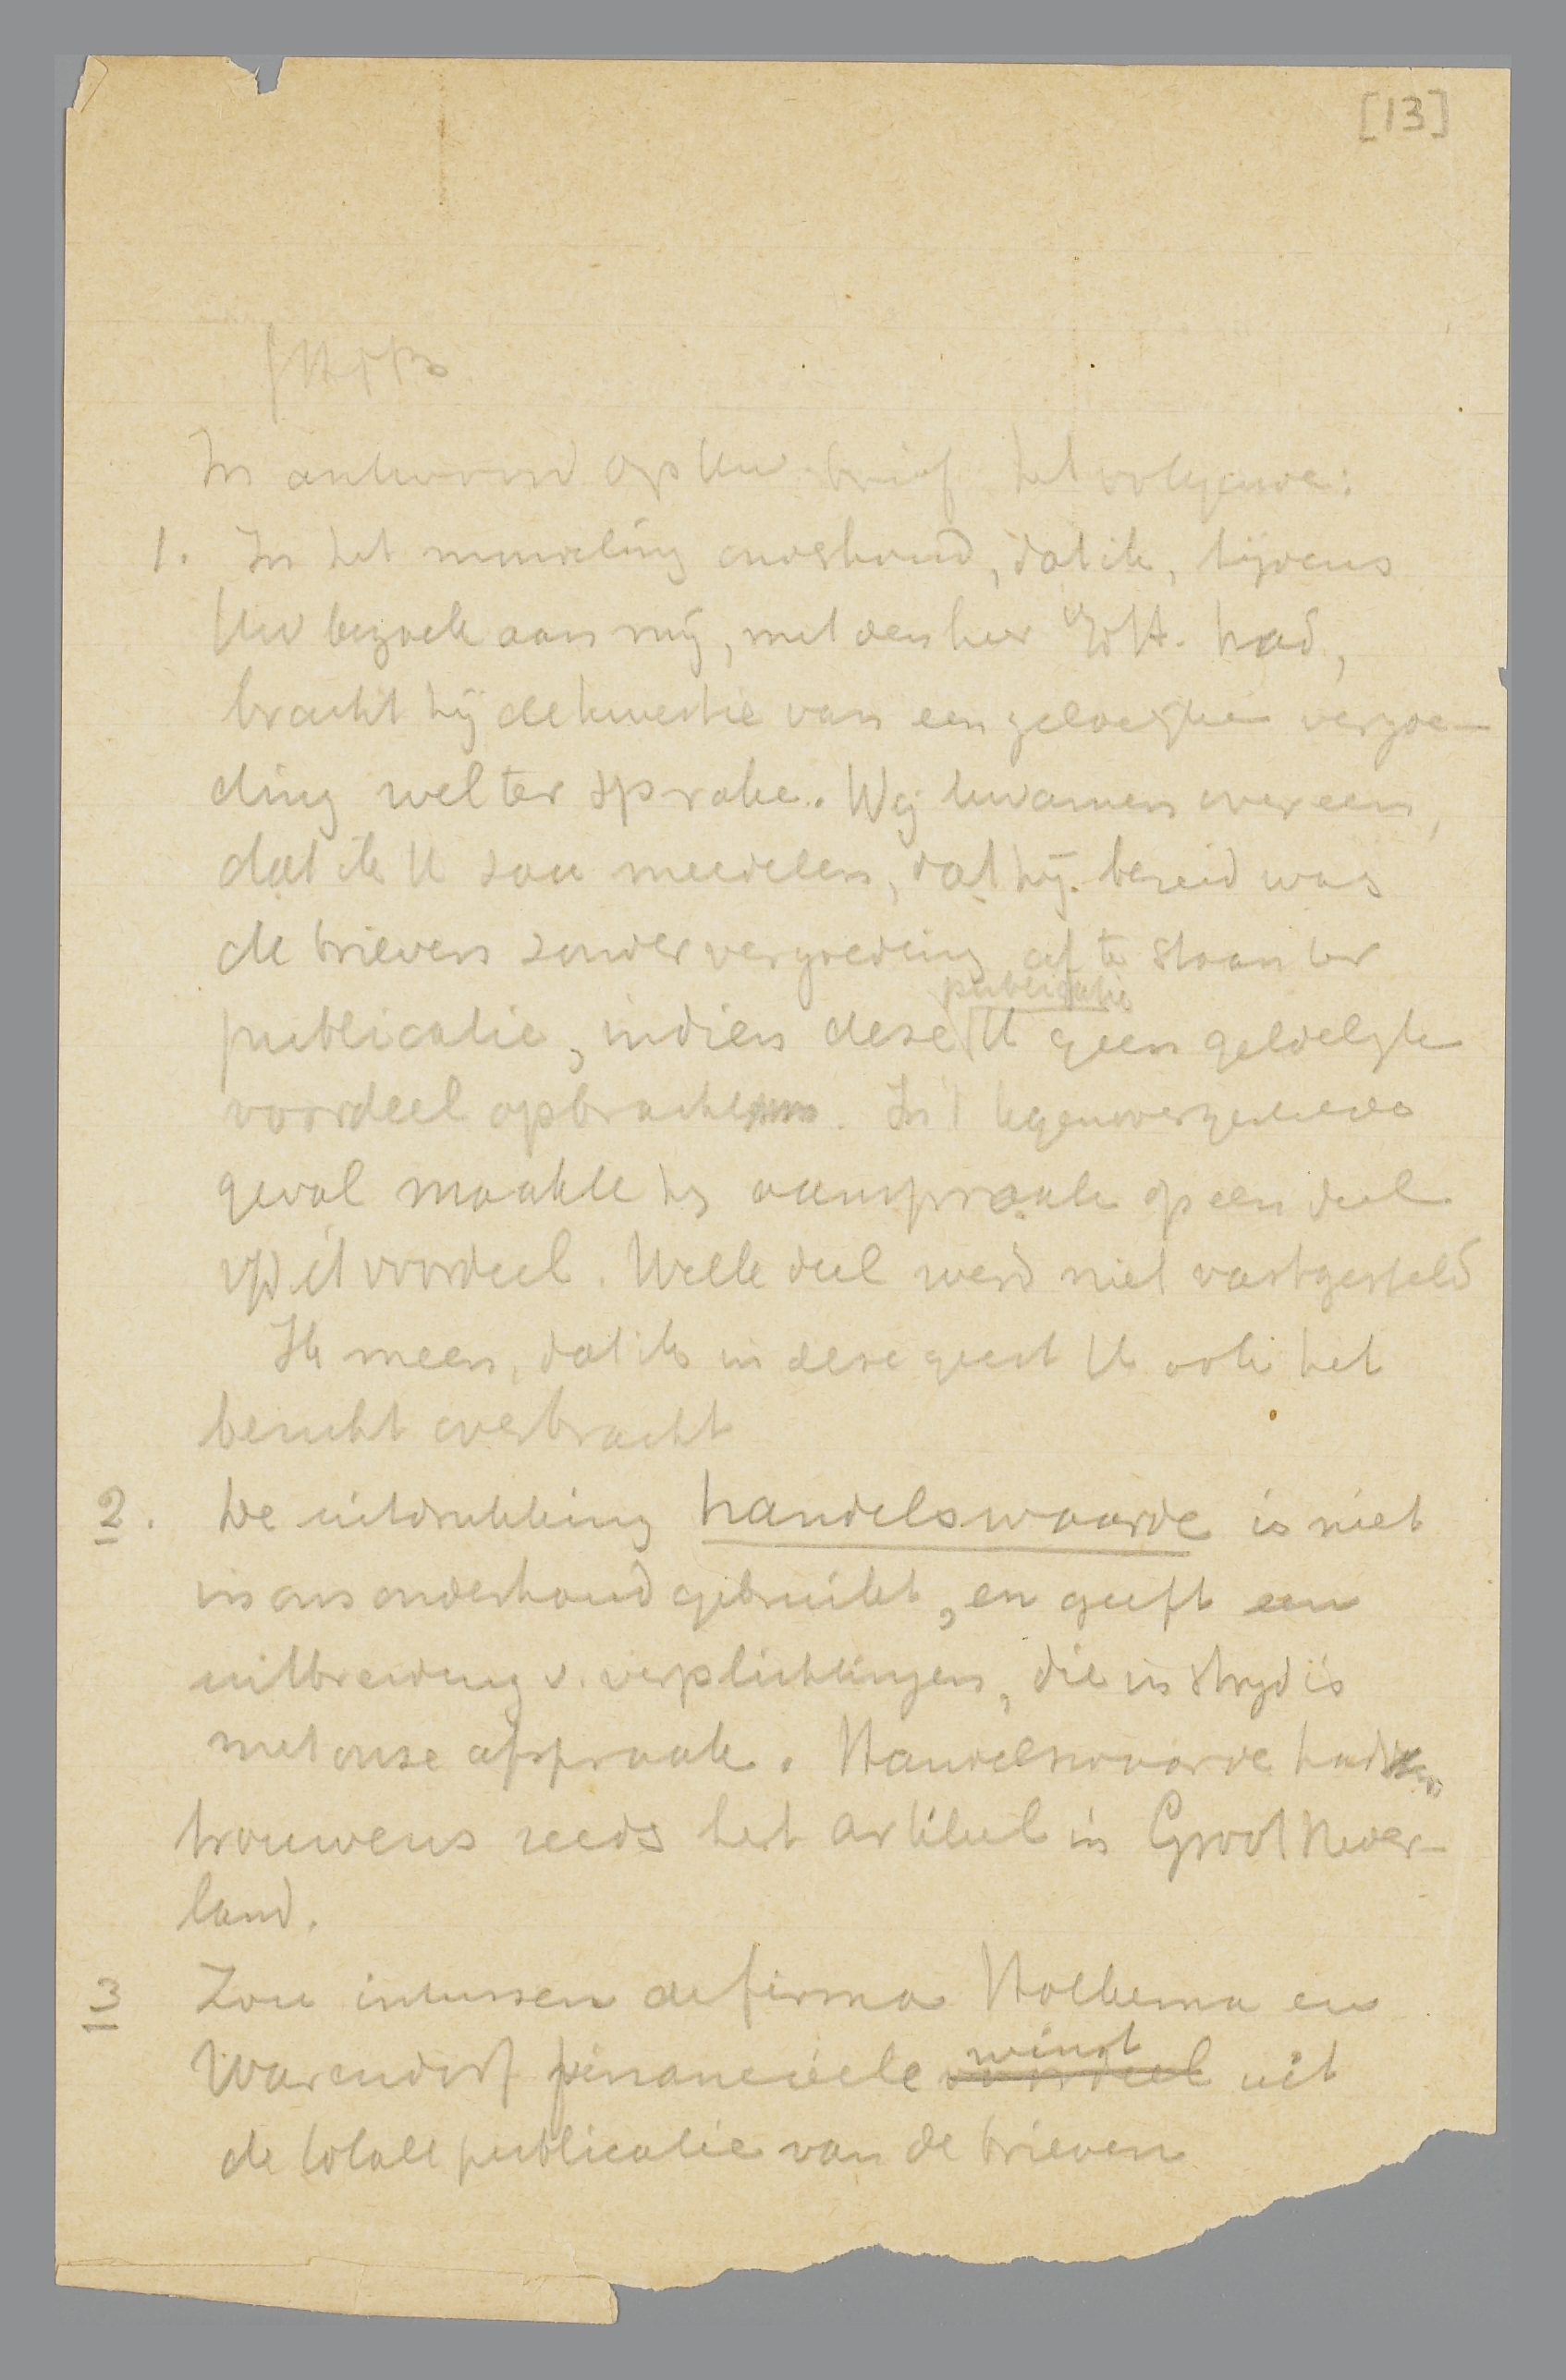 [13]
In antwoord op Uw brief het volgende:
1. In het mondeling onderhoud, dat ik, tijdens
Uw bezoek aan mij, met den heer Ed H. had,
bracht hij de kwestie van een geldelijke vergoe-
ding wel ter sprake. Wij kwamen overeen,
dat ik U zou meedelen, dat hij bereid was
de brieven zonder vergoeding af te staan ter
publicatie
publicatie, indien deze U geen geldelijk
voordeel opbracht. In 't tegenovergestelde
geval maakte hij aanspraak op een deel
v/d it voordeel. Welk deel werd niet vastgesteld
Ik meen, dat ik in deze geest U ook het
bericht overbracht
2. De uitdrukking handelswaarde is niet
in ons onderhoud gebruikt, en geeft een
uitbreiding v. verplichtingen, die in strijd is
met onze afspraak. Handelswaarde had
trouwens reeds het artikel in Groot Neder-
land.
3 Zou intussen de firma Holkema en
winst
Warendorf financieele voordeel uit
de totale publicatie van de brieven